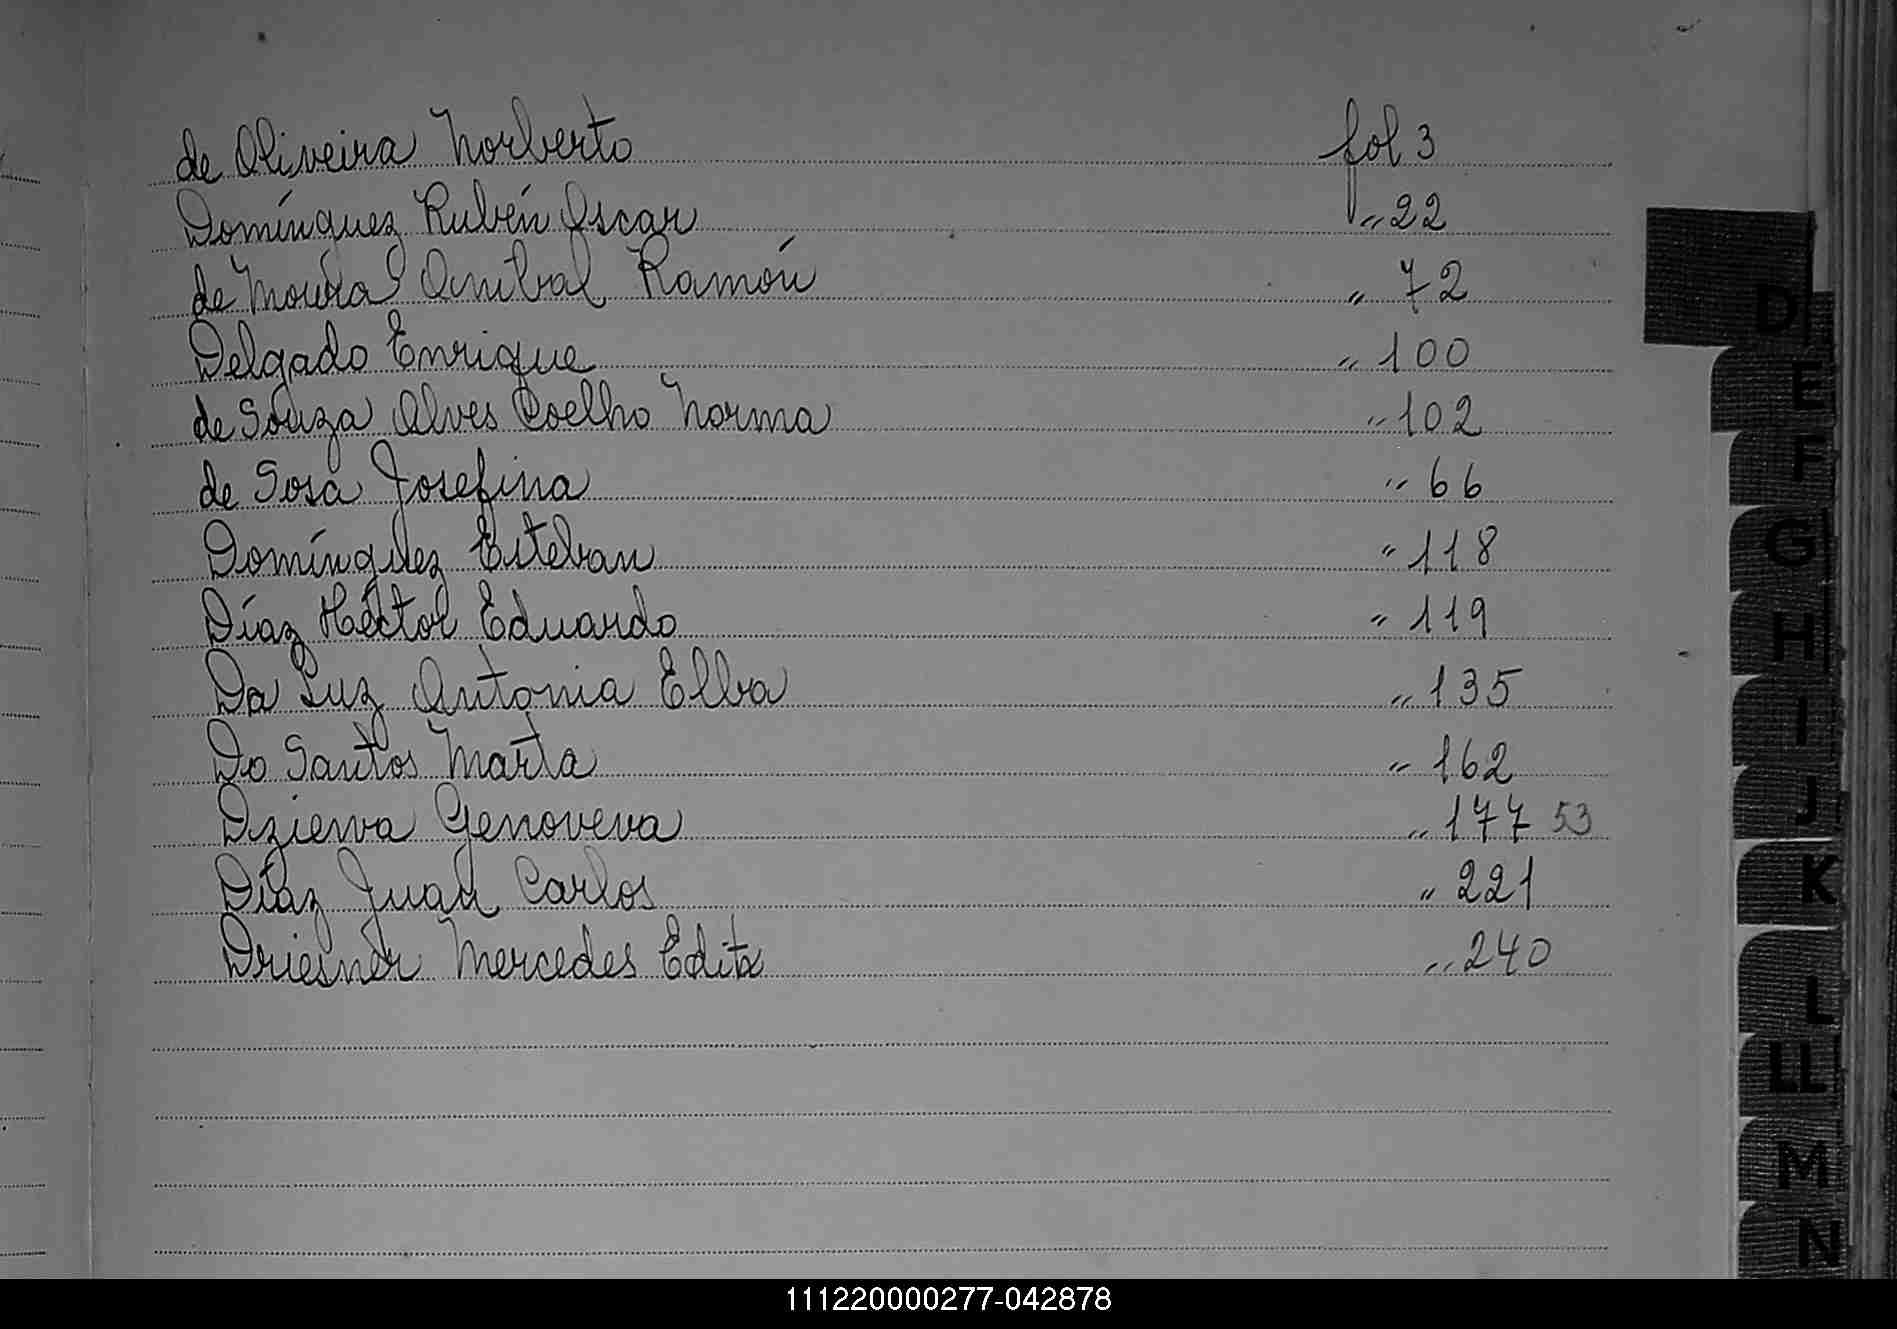 de Oliveira Norberto fol 3
Domínguez Rubén Oscar " 22
de Moura Anibal Ramón " 72
Delgado Enrique " 100
de Souza Alves Coelho Norma " 102
de Sosa Josefina " 66
Domínguez Esteban " 118
Díaz Héctor Eduardo " 119
Da Luz Antonia Elba " 135
Do Santos Marta " 162
Dzierva Genoveva " 177 53
Díaz Juan Carlos " 221
Driesner Mercedes Edita " 240
D
E
F
G
H
I
J
K
L
LL
M
N
111220000277-042878